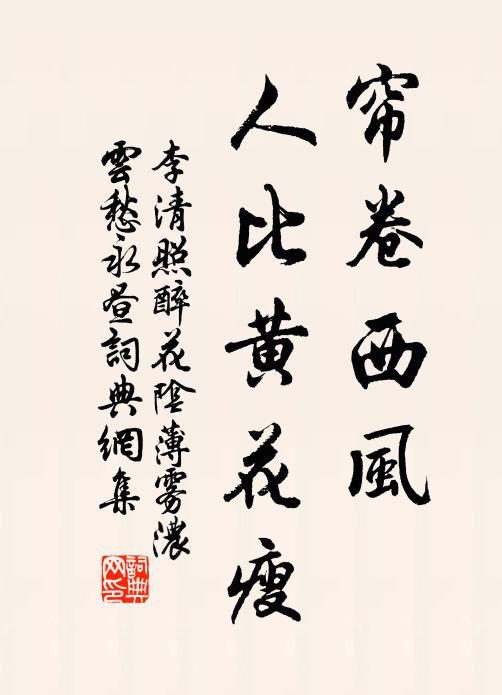 帘卷西風
人比黄花瘦
李清照醉花陰薄雾濃
雲愁永昼詞典網集
詞典
网印